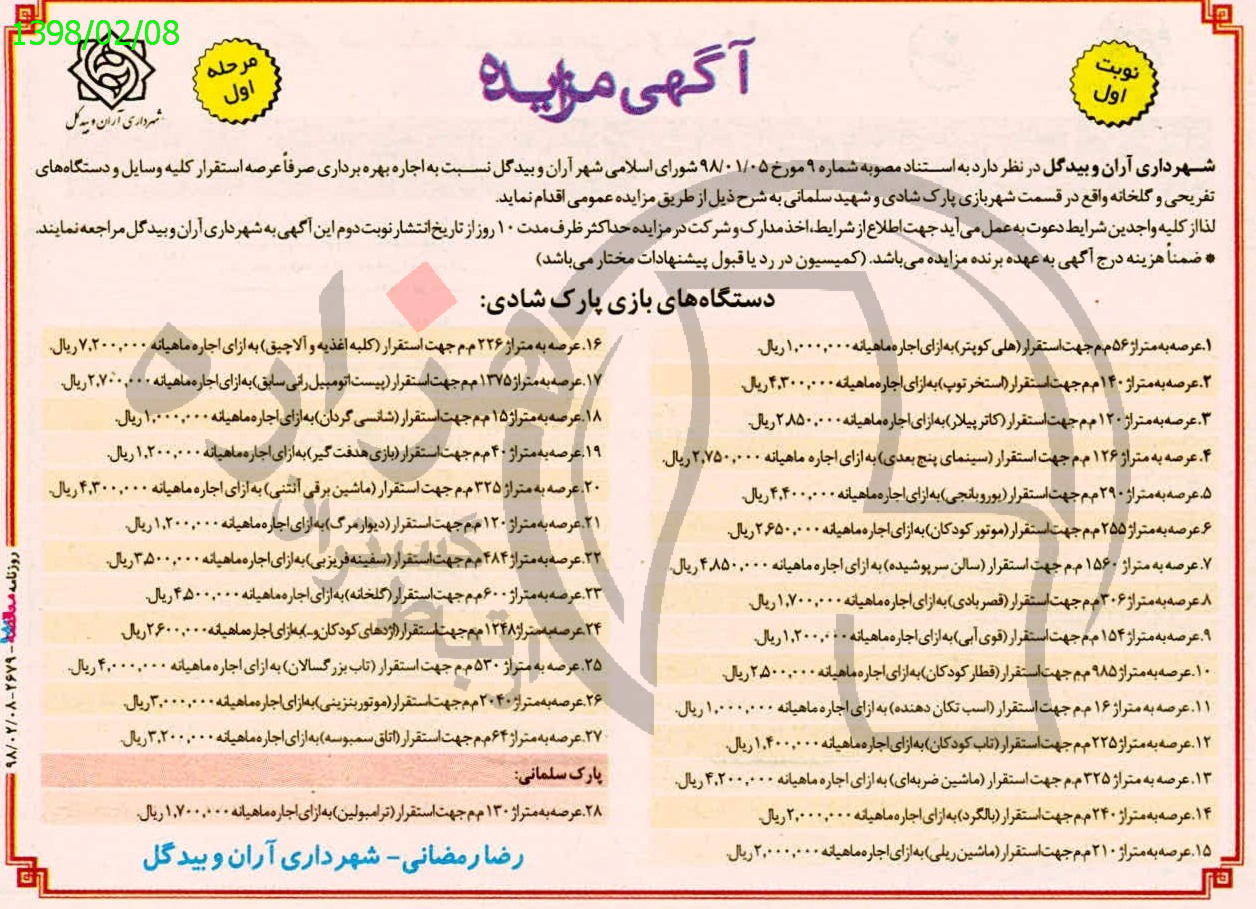 1398/02/08
نوبت
اول
آگهی مزایده
مرحله
اول
شهرداری آران و بیدگل
شهرداری آران و بیدگل در نظر دارد به استناد مصوبه شماره ۹ مورخ ۹۸/۰۱/۰۵ شورای اسلامی شهر آران و بیدگل نسبت به اجاره بهره برداری صرفاً عرصه استقرار کلیه وسایل و دستگاه‌های
تفریحی و گلخانه واقع در قسمت شهربازی پارک شادی و شهید سلمانی به شرح ذیل از طریق مزایده عمومی اقدام نماید.
لذا از کلیه واجدین شرایط دعوت به عمل می‌آید جهت اطلاع از شرایط، اخذ مدارک و شرکت در مزایده حداکثر ظرف مدت ۱۰ روز از تاریخ انتشار نوبت دوم این آگهی به شهرداری آران و بیدگل مراجعه نمایند.
* ضمناً هزینه درج آگهی به عهده برنده مزایده می‌باشد. (کمیسیون در رد یا قبول پیشنهادات مختار می‌باشد)
دستگاه‌های بازی پارک شادی:
۱. عرصه به متراژ ۵۶ م.م جهت استقرار (هلی کوپتر) به ازای اجاره ماهیانه ۱,۰۰۰,۰۰۰ ریال.
۲. عرصه به متراژ ۱۴۰ م.م جهت استقرار (استخر توپ) به ازای اجاره ماهیانه ۴,۳۰۰,۰۰۰ ریال.
۳. عرصه به متراژ ۱۲۰ م.م جهت استقرار (کاتر پیلار) به ازای اجاره ماهیانه ۲,۸۵۰,۰۰۰ ریال.
۴. عرصه به متراژ ۱۲۶ م.م جهت استقرار (سینمای پنج بعدی) به ازای اجاره ماهیانه ۲,۷۵۰,۰۰۰ ریال.
۵. عرصه به متراژ ۲۹۰ م.م جهت استقرار (یوروبانجی) به ازای اجاره ماهیانه ۴,۴۰۰,۰۰۰ ریال.
۶. عرصه به متراژ ۲۵۵ م.م جهت استقرار (موتور کودکان) به ازای اجاره ماهیانه ۲,۶۵۰,۰۰۰ ریال.
۷. عرصه به متراژ ۱۵۶۰ م.م جهت استقرار (سالن سرپوشیده) به ازای اجاره ماهیانه ۴,۸۵۰,۰۰۰ ریال.
۸. عرصه به متراژ ۳۰۶ م.م جهت استقرار (قصر بادی) به ازای اجاره ماهیانه ۱,۷۰۰,۰۰۰ ریال.
۹. عرصه به متراژ ۱۵۴ م.م جهت استقرار (قوی آبی) به ازای اجاره ماهیانه ۱,۲۰۰,۰۰۰ ریال.
۱۰. عرصه به متراژ ۹۸۵ م.م جهت استقرار (قطار کودکان) به ازای اجاره ماهیانه ۲,۵۰۰,۰۰۰ ریال.
۱۱. عرصه به متراژ ۱۶ م.م جهت استقرار (اسب تکان دهنده) به ازای اجاره ماهیانه ۱,۰۰۰,۰۰۰ ریال.
۱۲. عرصه به متراژ ۲۲۵ م.م جهت استقرار (تاب کودکان) به ازای اجاره ماهیانه ۱,۴۰۰,۰۰۰ ریال.
۱۳. عرصه به متراژ ۳۲۵ م.م جهت استقرار (ماشین ضربه‌ای) به ازای اجاره ماهیانه ۴,۲۰۰,۰۰۰ ریال.
۱۴. عرصه به متراژ ۲۴۰ م.م جهت استقرار (بالگرد) به ازای اجاره ماهیانه ۲,۰۰۰,۰۰۰ ریال.
۱۵. عرصه به متراژ ۲۱۰ م.م جهت استقرار (ماشین ریلی) به ازای اجاره ماهیانه ۲,۰۰۰,۰۰۰ ریال.
۱۶. عرصه به متراژ ۲۲۶ م.م جهت استقرار (کلبه اغذیه و آلاچیق) به ازای اجاره ماهیانه ۷,۲۰۰,۰۰۰ ریال.
۱۷. عرصه به متراژ ۱۳۷۵ م.م جهت استقرار (پیست اتومبیل رانی سابق) به ازای اجاره ماهیانه ۲,۷۰۰,۰۰۰ ریال.
۱۸. عرصه به متراژ ۱۵ م.م جهت استقرار (شانسی گردان) به ازای اجاره ماهیانه ۱,۰۰۰,۰۰۰ ریال.
۱۹. عرصه به متراژ ۴۰ م.م جهت استقرار (بازی هدفت گیر) به ازای اجاره ماهیانه ۱,۲۰۰,۰۰۰ ریال.
۲۰. عرصه به متراژ ۳۲۵ م.م جهت استقرار (ماشین برقی آنتنی) به ازای اجاره ماهیانه ۴,۳۰۰,۰۰۰ ریال.
۲۱. عرصه به متراژ ۱۲۰ م.م جهت استقرار (دیوار مرگ) به ازای اجاره ماهیانه ۱,۲۰۰,۰۰۰ ریال.
۲۲. عرصه به متراژ ۴۸۴ م.م جهت استقرار (سفینه فریزبی) به ازای اجاره ماهیانه ۳,۵۰۰,۰۰۰ ریال.
۲۳. عرصه به متراژ ۶۰۰ م.م جهت استقرار (گلخانه) به ازای اجاره ماهیانه ۴,۵۰۰,۰۰۰ ریال.
۲۴. عرصه به متراژ ۱۲۴۸ م.م جهت استقرار (اژدهای کودکان و...) به ازای اجاره ماهیانه ۲,۶۰۰,۰۰۰ ریال.
۲۵. عرصه به متراژ ۵۳۰ م.م جهت استقرار (تاب بزرگسالان) به ازای اجاره ماهیانه ۴,۰۰۰,۰۰۰ ریال.
۲۶. عرصه به متراژ ۲۰۴۰ م.م جهت استقرار (موتور بنزینی) به ازای اجاره ماهیانه ۳,۰۰۰,۰۰۰ ریال.
۲۷. عرصه به متراژ ۶۴ م.م جهت استقرار (اتاق سمبوسه) به ازای اجاره ماهیانه ۳,۲۰۰,۰۰۰ ریال.
پارک سلمانی:
۲۸. عرصه به متراژ ۱۳۰ م.م جهت استقرار (ترامبولین) به ازای اجاره ماهیانه ۱,۷۰۰,۰۰۰ ریال.
رضا رمضانی - شهرداری آران و بیدگل
روزنامه - ۲۶۷۹ - ۹۸/۰۲/۰۸
هزاره